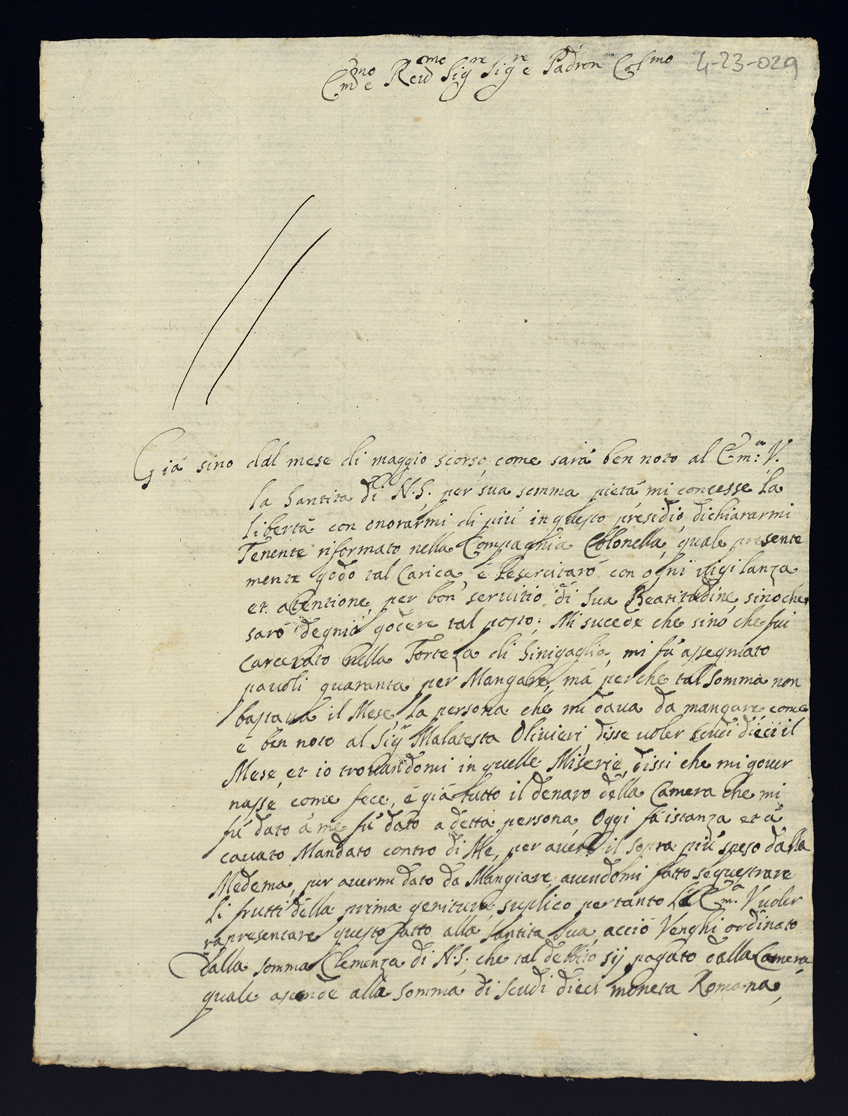 Em.mo e Reud.mo Sig.re Sig.re e Padron Col.mo
4-23-029
Già sino dal mese di maggio scorso come sarà ben noto al Em.a V.
la Santità di N.S. per sua somma pietà mi concesse la
libertà con onorarmi di più in questo presidio dichiararmi
Tenente riformato nella Compaghia Colonella, quale presente
mente godo tal Carica, e l'esercitarò con ogni vigilanza
et atentione per bon servitio di Sua Beatitudine sinoche
sarò degnio godere tal posto; Mi sucede che sino che fui
Carcerato nella Forteza di Sinigaglia, mi fù assegniato
pauoli quaranta per Mangare, mà perche tal somma non
bastaua il Mese la persona che mi daua da mangare come
è ben noto al Sig.r Malatesta Oliuieri disse uoler scudi dieci il
Mese, et io trouandomi in quelle Miserie, dissi che mi gouer
nasse, come fece, e già tutto il denaro della Camera che mi
fù dato à me fù dato a detta persona Oggi fà istanza et à
cauato Mandato contro di Me, per auere il sopra più speso dalla
Medema, per auermi dato da Mangiare auendomi fatto sequestrare
li frutti della prima genitura, suplico per tanto l'Em.a V uoler
rapresentare questo fatto alla Santità Sua acciò Venghi ordinato
dalla somma Clemenza di N.S. che tal debito sij pagato dalla Camera
quale asende alla somma di scudi dieci moneta Romana,